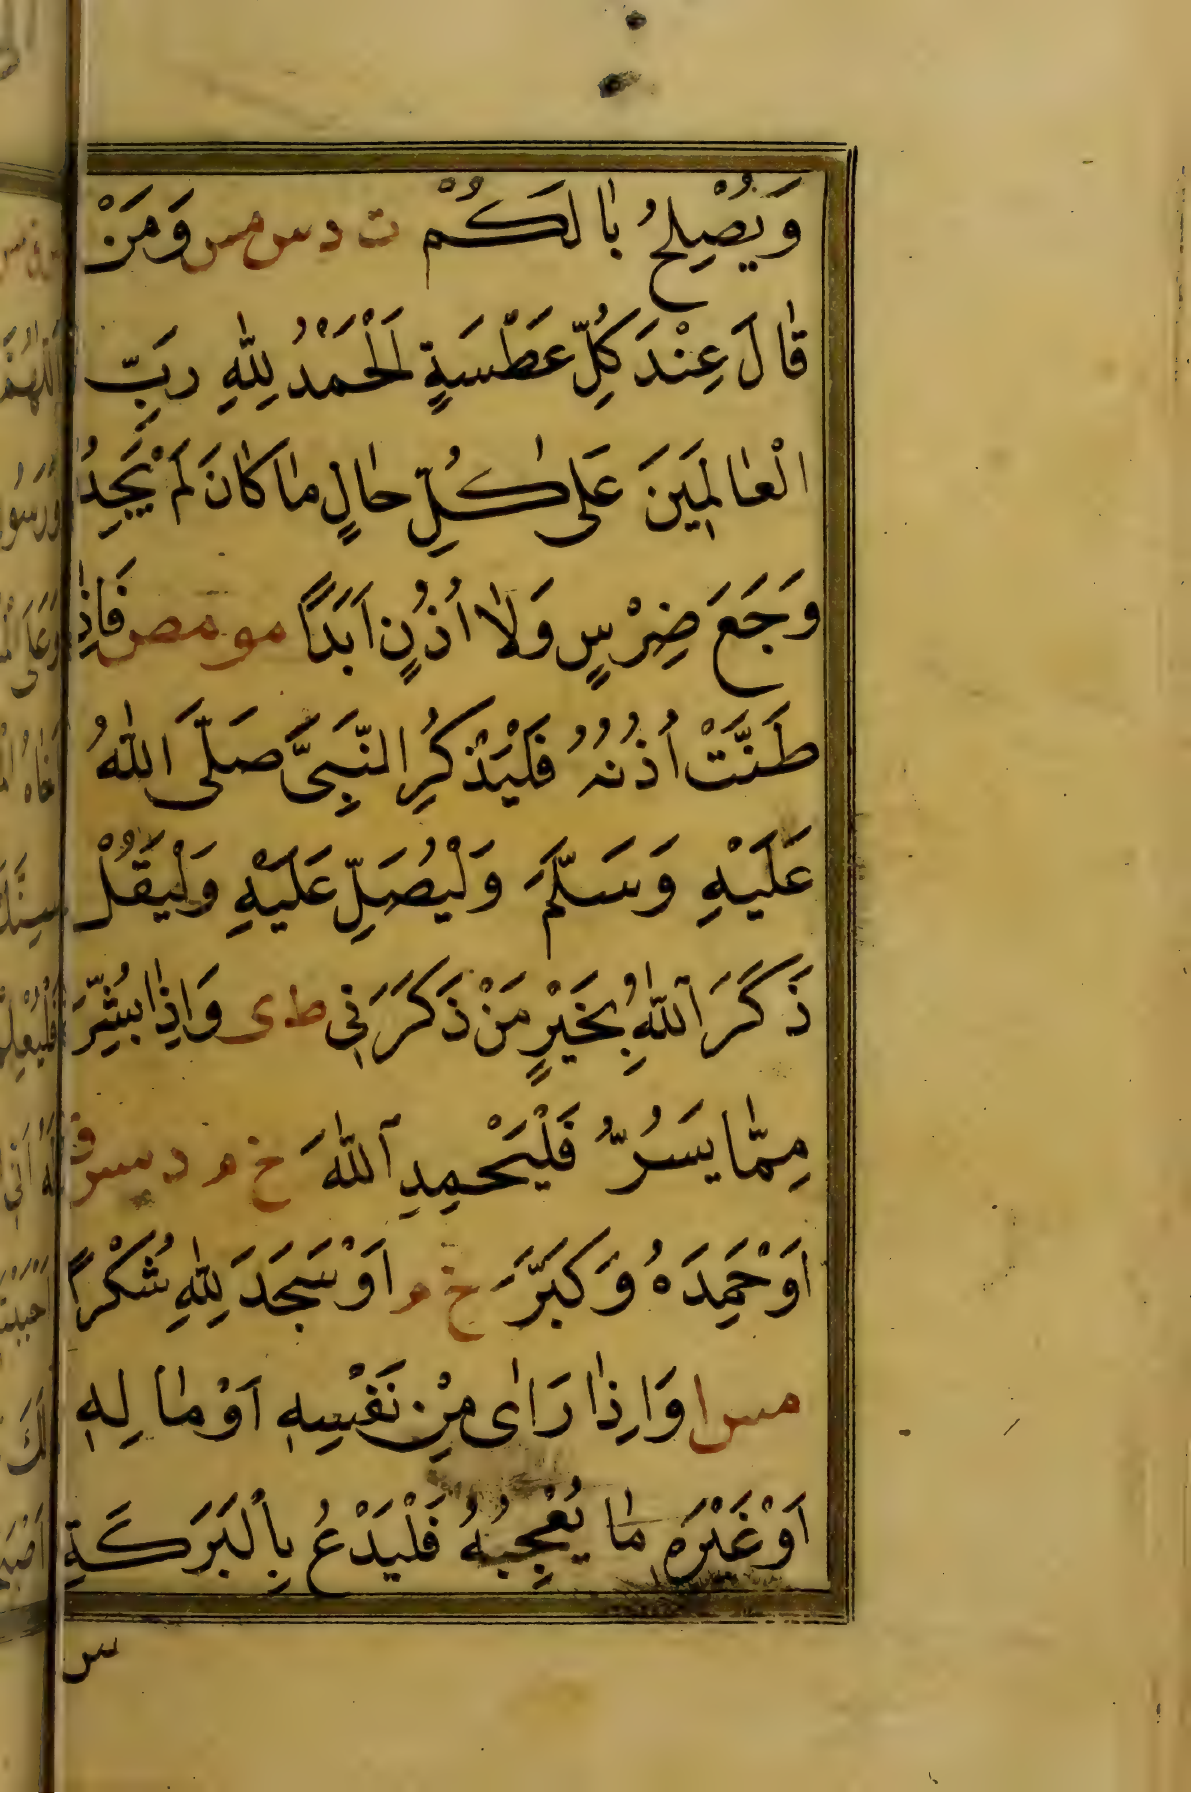 وَيُصْلِحُ بَالَكُمْ ت د س مس وَمَنْ
قَالَ عِنْدَ كُلِّ عَطْسَةٍ اَلْحَمْدُ لِلّٰهِ رَبِّ
الْعَالَمِينَ عَلٰى كُلِّ حَالٍ مَا كَانَ لَمْ يَجِدْ
وَجَعَ ضِرْسٍ وَلَا اُذُنٍ اَبَدًا مو مص فَاِذَا
طَنَّتْ اُذُنُهُ فَلْيَذْكُرِ النَّبِىَّ صَلَّى اللّٰهُ
عَلَيْهِ وَسَلَّمَ وَلْيُصَلِّ عَلَيْهِ وَلْيَقُلْ
ذَكَرَ اللّٰهُ بِخَيْرٍ مَنْ ذَكَرَنِى ط ى وَاِذَا بُشِّرَ
مِمَّا يَسُرُّهُ فَلْيَحْمِدِ اللّٰهَ خ م د س ق
اَوْ حَمِدَهُ وَكَبَّرَ خ م اَوْ سَجَدَ لِلّٰهِ شُكْرًا
مس ا وَاِذَا رَاٰى مِنْ نَفْسِهِ اَوْ مَالِهِ
اَوْ غَيْرِهِ مَا يُعْجِبُهُ فَلْيَدْعُ بِالْبَرَكَةِ
س